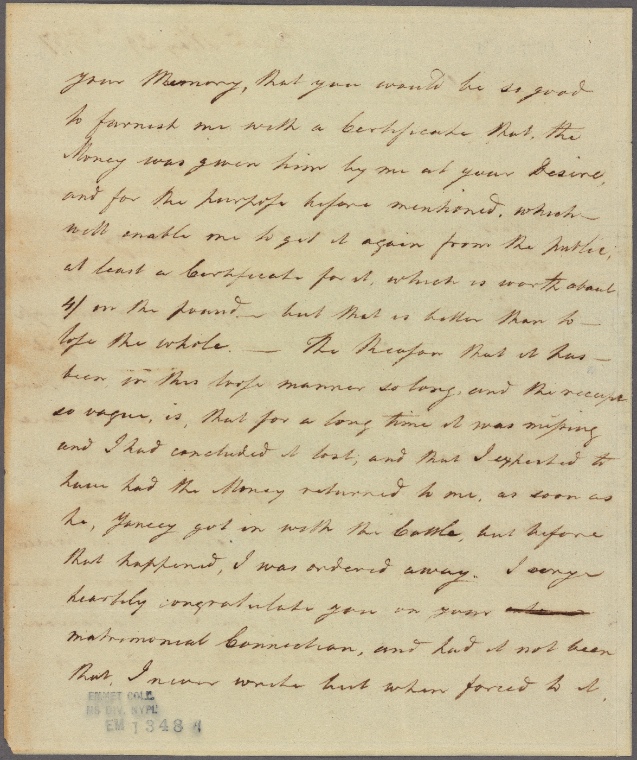 your Memory, that you would be so good
to furnish me with a Certificate that, the
Money was given him by me at your Desire,
and for the purpose before mentioned, which
will enable me to get it again from the public;
at least a Certificate for it, which is worth about
4/ in the pound — but that is better than to
lose the whole. — The Reason that it has
been in this loose manner so long, and the receipt
so vague, is, that for a long time it was missing
and I had concluded it lost, and that I expected to
have had the Money returned to me, as soon as
he, Yancey got in with the Cattle, but before
that happened, I was ordered away. I very
heartily congratulate you on your
matrimonial Connection, and had it not been
that, I never write but when forced to it,
EMMET COLL.
MS DIV. NYPL
EM 13484